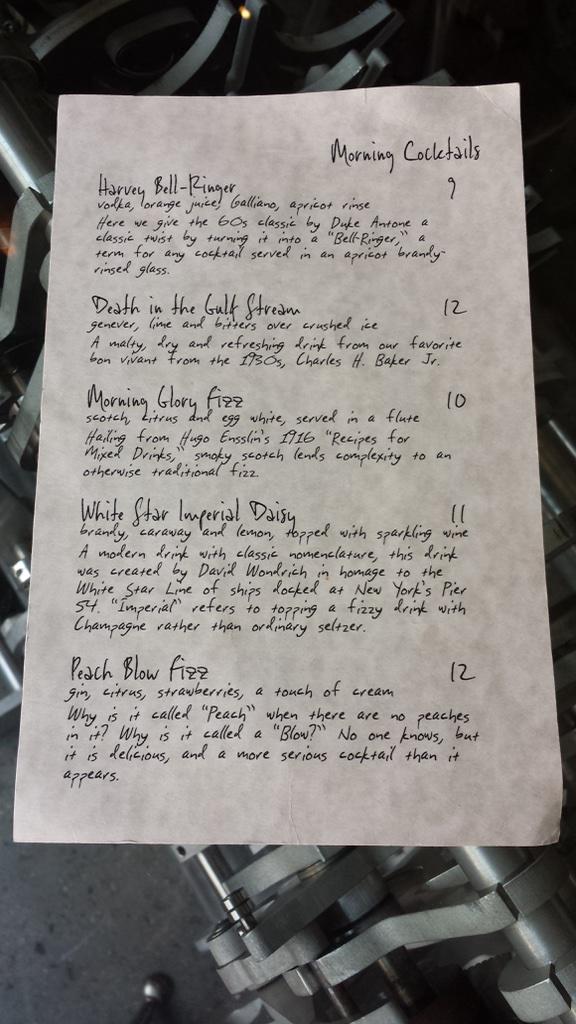 Morning Cocktails
Harvey Bell-Ringer 9
vodka, orange juice, Galliano, apricot rinse
Here we give the 60s classic by Duke Antone a
classic twist by turning it into a "Bell-Ringer," a
term for any cocktail served in an apricot brandy-
rinsed glass.
Death in the Gulf Stream 12
genever, lime and bitters over crushed ice
A malty, dry and refreshing drink from our favorite
bon vivant from the 1930s, Charles H. Baker Jr.
Morning Glory Fizz 10
scotch, citrus and egg white, served in a flute
Hailing from Hugo Ensslin's 1916 "Recipes for
Mixed Drinks," smoky scotch lends complexity to an
otherwise traditional fizz.
White Star Imperial Daisy 11
brandy, caraway and lemon, topped with sparkling wine
A modern drink with classic nomenclature, this drink
was created by David Wondrich in homage to the
White Star Line of ships docked at New York's Pier
54. "Imperial" refers to topping a fizzy drink with
Champagne rather than ordinary seltzer.
Peach Blow Fizz 12
gin, citrus, strawberries, a touch of cream
Why is it called "Peach" when there are no peaches
in it? Why is it called a "Blow?" No one knows, but
it is delicious, and a more serious cocktail than it
appears.